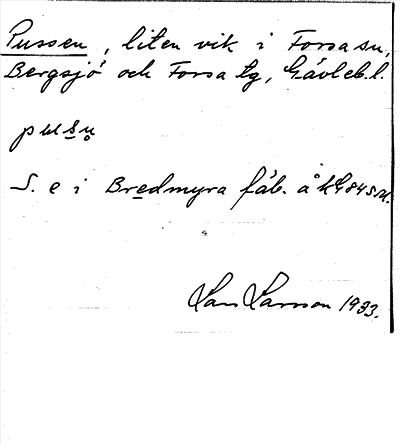 Pussen, liten vik i Forsa sn,
Bergsjö och Forsa tg, Gävleb.l.
pusu̥
S. e i Bredmyra fäb. å
Lars Larsson 1933.